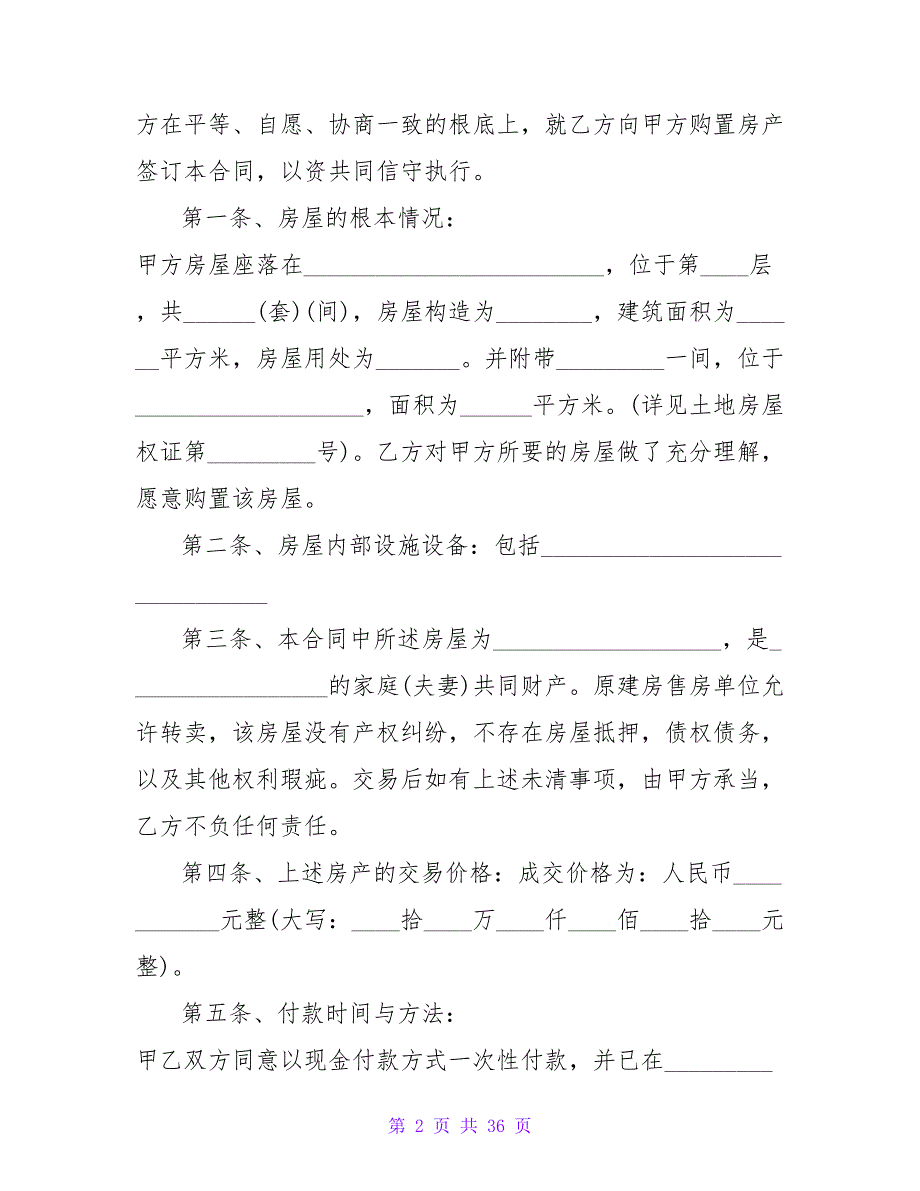 方在平等、自愿、协商一致的根底上，就乙方向甲方购置房产
签订本合同，以资共同信守执行。
第一条、房屋的根本情况：
甲方房屋座落在_________________________，位于第____层
，共______(套)(间)，房屋构造为________，建筑面积为____
__平方米，房屋用处为_______。并附带_________一间，位于
___________________，面积为______平方米。(详见土地房屋
权证第_________号)。乙方对甲方所要的房屋做了充分理解，
愿意购置该房屋。
第二条、房屋内部设施设备：包括____________________
___________
第三条、本合同中所述房屋为___________________，是_
________________的家庭(夫妻)共同财产。原建房售房单位允
许转卖，该房屋没有产权纠纷，不存在房屋抵押，债权债务，
以及其他权利瑕疵。交易后如有上述未清事项，由甲方承当，
乙方不负任何责任。
第四条、上述房产的交易价格：成交价格为：人民币____
_______元整(大写：____拾____万____仟____佰____拾____元
整)。
第五条、付款时间与方法：
甲乙双方同意以现金付款方式一次性付款，并已在_________
第 2 页 共 36 页